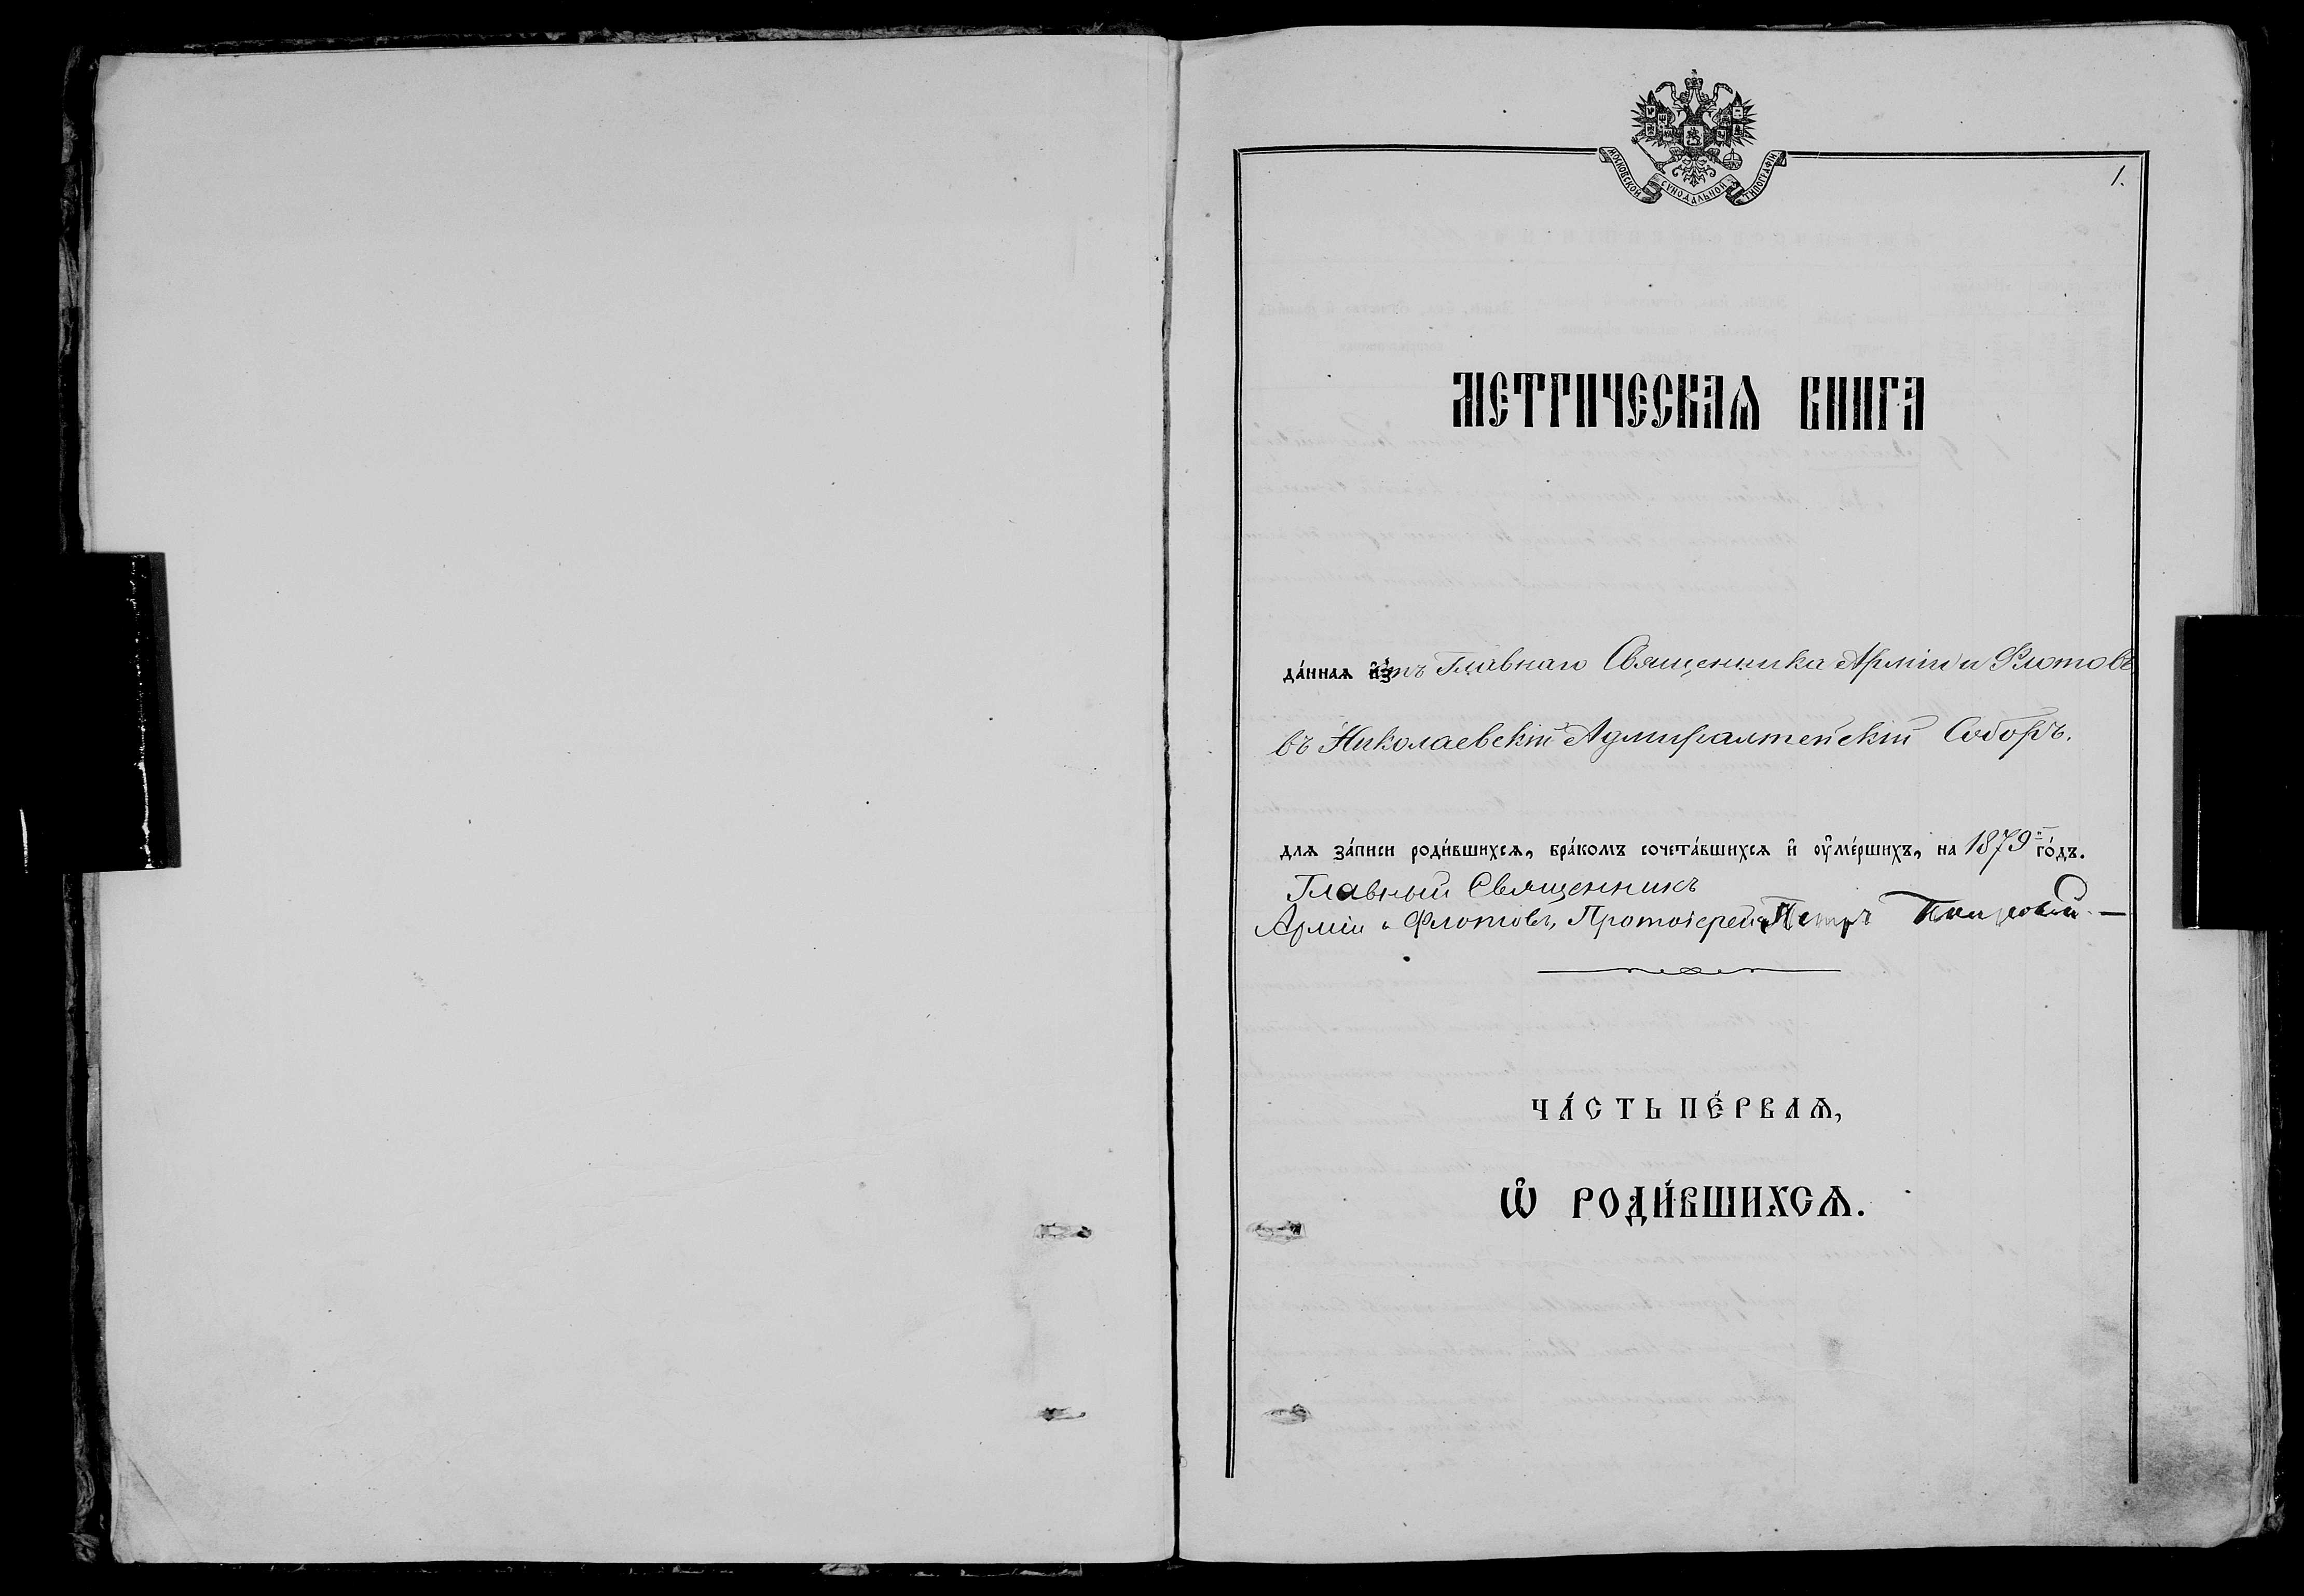 МОСКОВСКОЙ СѴНОДАЛЬНОЙ ТИПОГРАФІИ
1.
МЕТРИЧЕСКАѦ КНИГА
да́ннаѧ ѿтъ Главнаго Священника Арміи и Флотовъ
въ Николаевскій Адмиралтейскій Соборъ.
длѧ за́писи роди́вшихсѧ, бра́комъ сочета́вшихсѧ и҆ ᲂу҆ме́ршихъ, на 1879й го́дъ.
Главный Священникъ
Арміи и Флотовъ, Протоіерей Петръ Покровскій.—
ЧА́СТЬ ПЕ́РВАѦ,
Ѽ РОДИ́ВШИХСѦ.